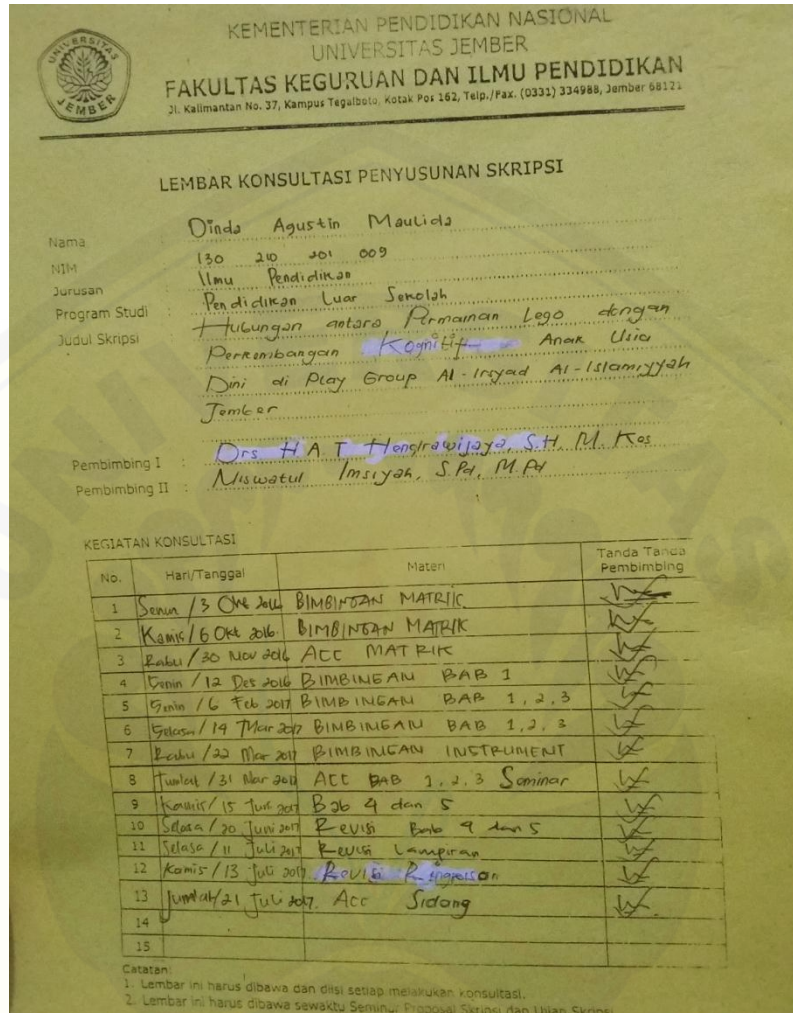 KEMENTERIAN PENDIDIKAN NASIONAL
UNIVERSITAS JEMBER
FAKULTAS KEGURUAN DAN ILMU PENDIDIKAN
Jl. Kalimantan No. 37, Kampus Tegalboto, Kotak Pos 162, Telp./Fax. (0331) 334988, Jember 68121
UNIVERSITAS JEMBER
LEMBAR KONSULTASI PENYUSUNAN SKRIPSI
Nama : Dinda Agustin Maulida
NIM : 130 210 201 009
Jurusan : Ilmu Pendidikan
Program Studi : Pendidikan Luar Sekolah
Judul Skripsi : Hubungan antara Permainan Lego dengan
Perkembangan Kognitif Anak Usia
Dini di Play Group Al-Irsyad Al-Islamiyyah
Jember
Pembimbing I : Drs H A T Hendrawijaya, S.H, M. Kes
Pembimbing II : Niswatul Imsiyah, S.Pd, M.Pd
KEGIATAN KONSULTASI
No. Hari/Tanggal Materi Tanda Tanda Pembimbing
1 Senin / 3 Okt 2016 BIMBINGAN MATRIK
2 Kamis / 6 Okt 2016 BIMBINGAN MATRIK
3 Rabu / 30 Nov 2016 ACC MATRIK
4 Senin / 12 Des 2016 BIMBINGAN BAB 1
5 Senin / 6 Feb 2017 BIMBINGAN BAB 1, 2, 3
6 Selasa / 14 Mar 2017 BIMBINGAN BAB 1, 2, 3
7 Rabu / 22 Mar 2017 BIMBINGAN INSTRUMENT
8 Jumlat / 31 Mar 2017 ACC BAB 1, 2, 3 Seminar
9 Kamis / 15 Juni 2017 Bab 4 dan 5
10 Selasa / 20 Juni 2017 Revisi Bab 4 dan 5
11 Selasa / 11 Juli 2017 Revisi Lampiran
12 Kamis / 13 Juli 2017 Revisi
13 Jumat / 21 Juli 2017. Acc Sidang
14
15
Catatan:
1. Lembar ini harus dibawa dan diisi setiap melakukan konsultasi.
2. Lembar ini harus dibawa sewaktu Seminar Proposal Skripsi dan Ujian Skripsi